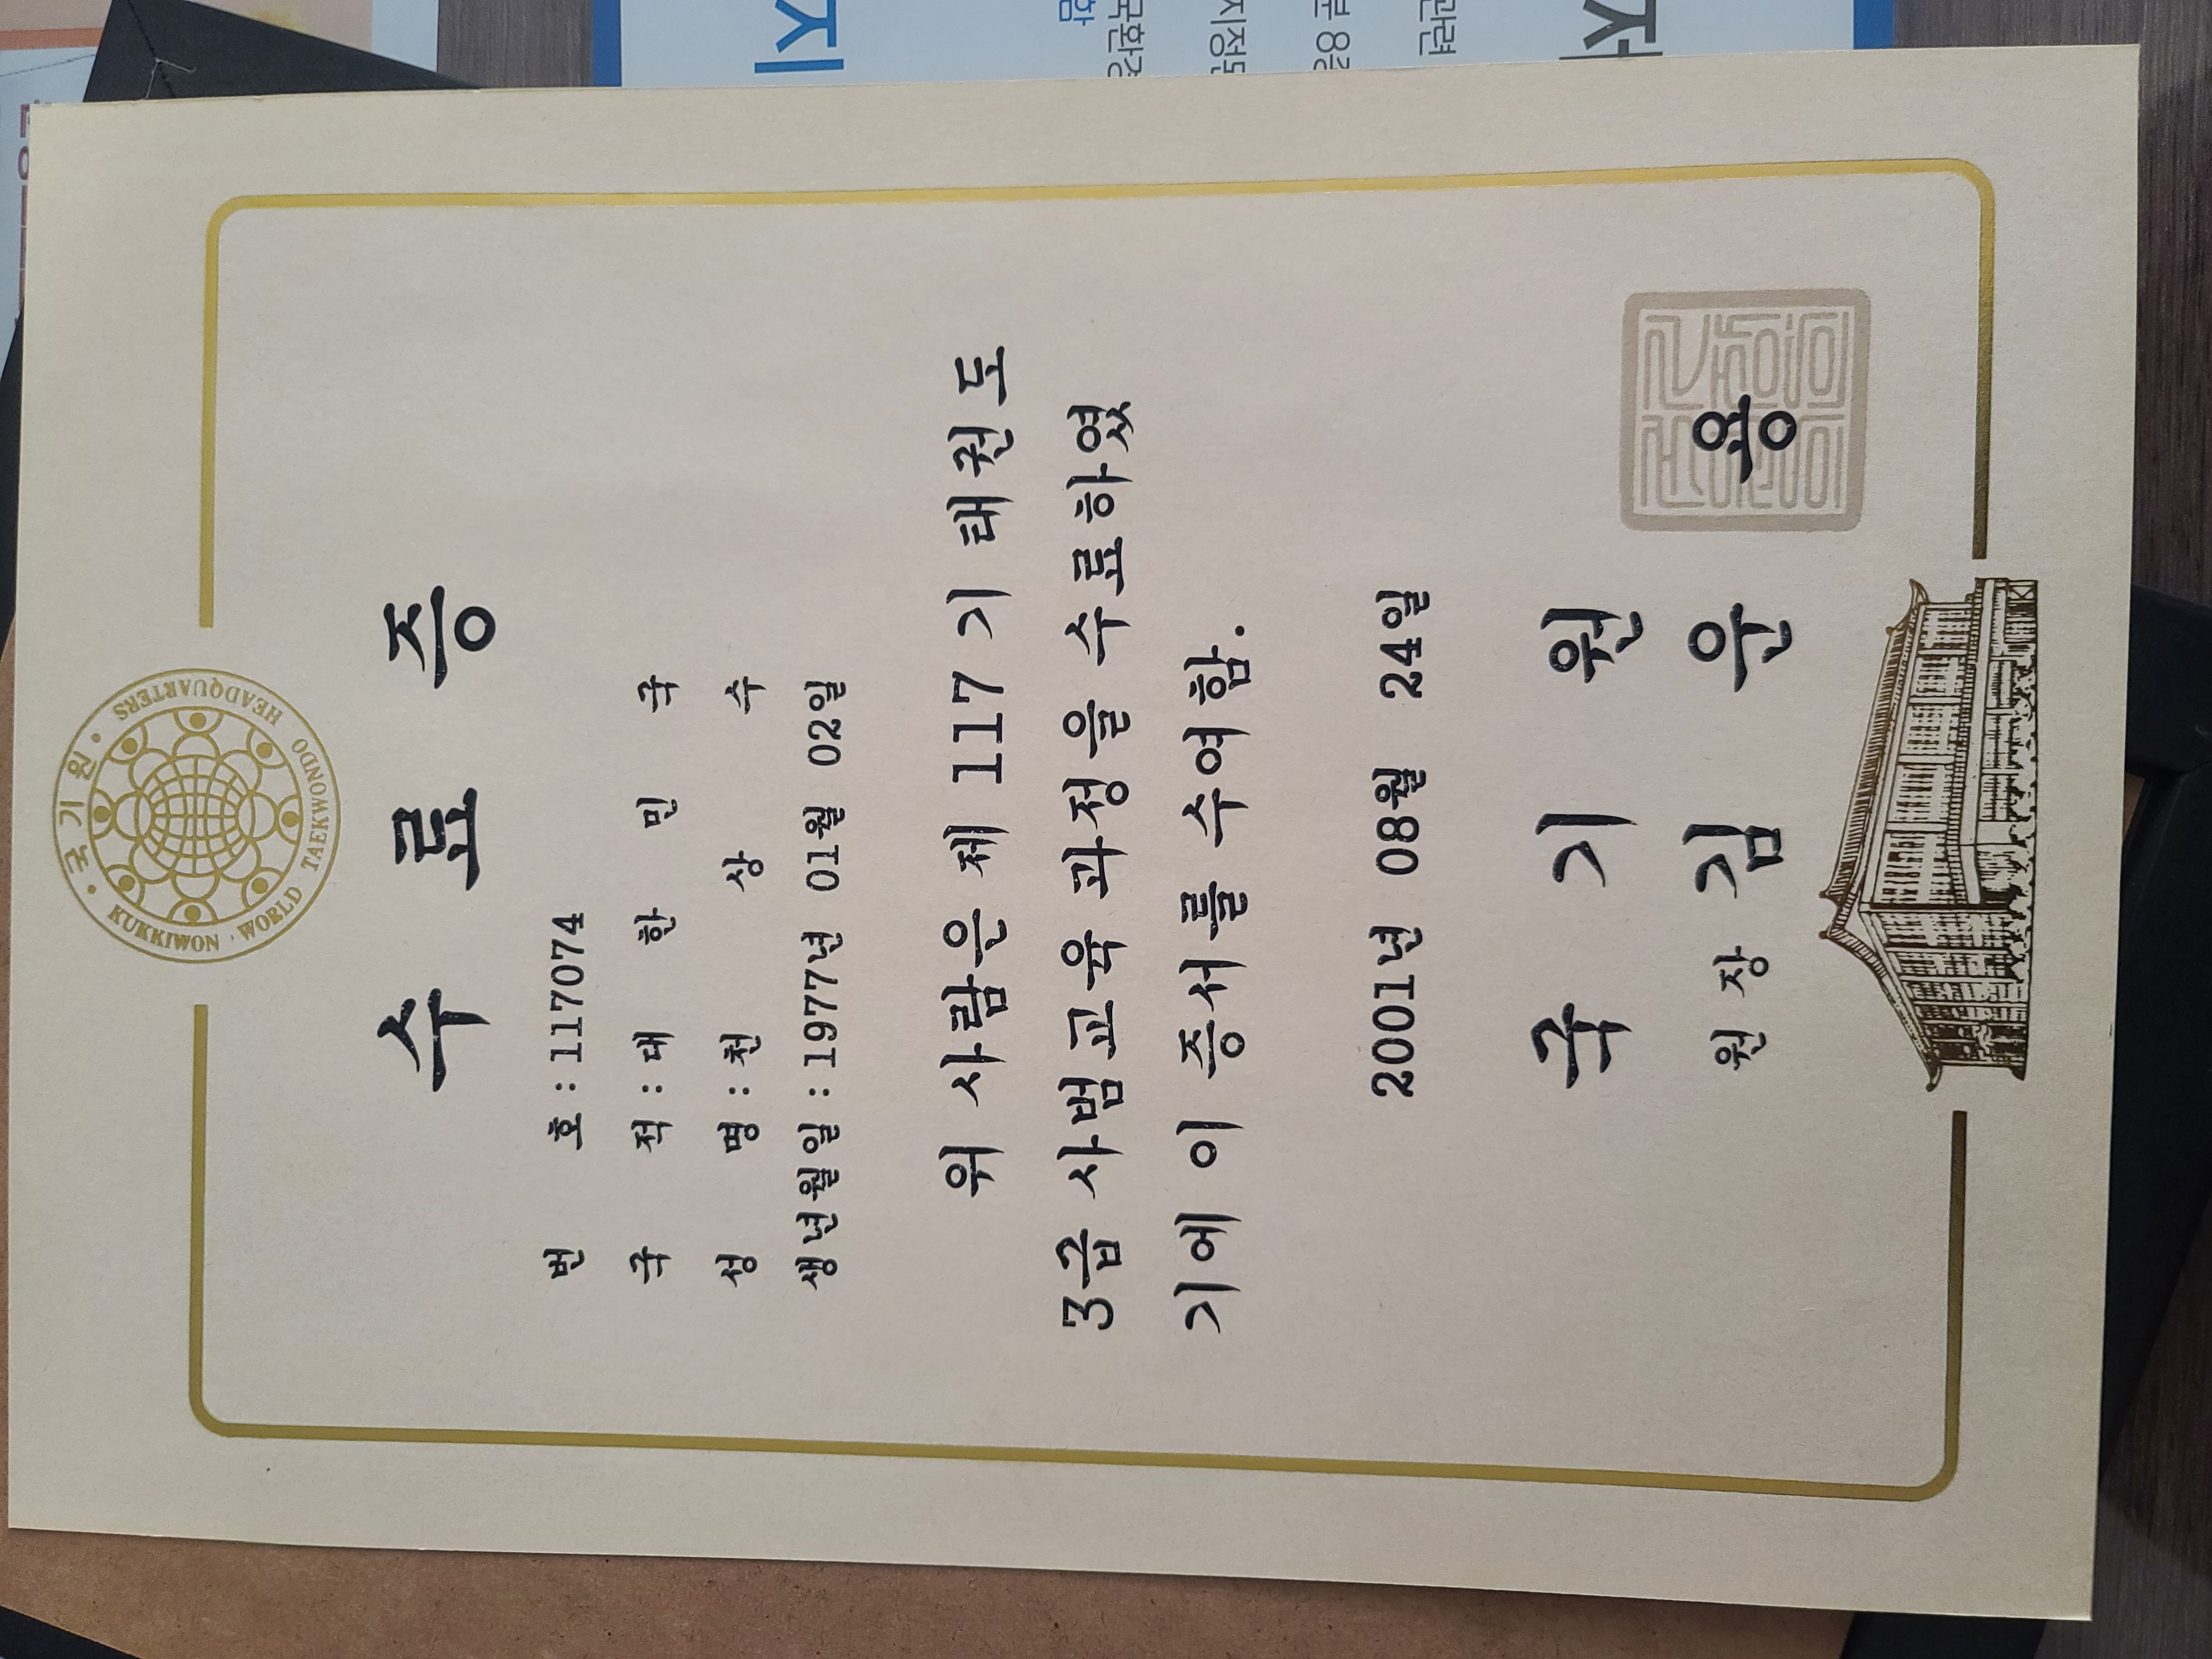 국 기 원
KUKKIWON · WORLD TAEKWONDO HEADQUARTERS
수 료 증
번 호 : 117074
국 적 : 대 한 민 국
성 명 : 천 상 수
생년월일 : 1977년 01월 02일
위 사람은 제 117 기 태권도
3급 사범교육 과정을 수료하였
기에 이 증서를 수여함.
2001년 08월 24일
국 기 원
원 장 김 운 용